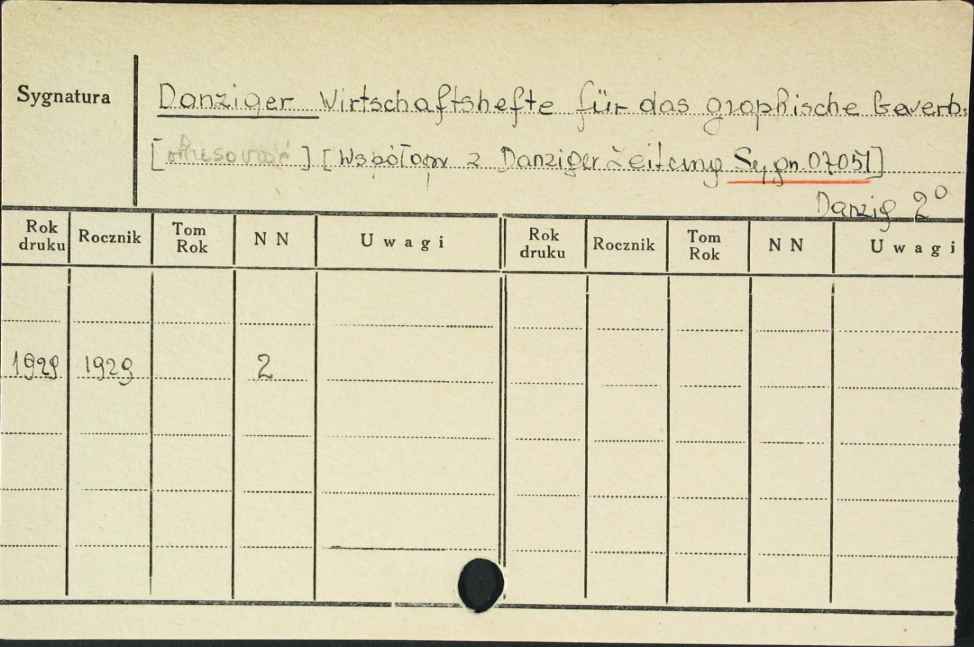 Sygnatura
Danziger Wirtschaftshefte für das graphische Gewerb.
[ ] [Współopr z Danziger Zeitung Sygn. 07051]
Danzig 2°
Rok druku Rocznik Tom Rok NN Uwagi Rok druku Rocznik Tom Rok NN Uwagi
1929 1929 2